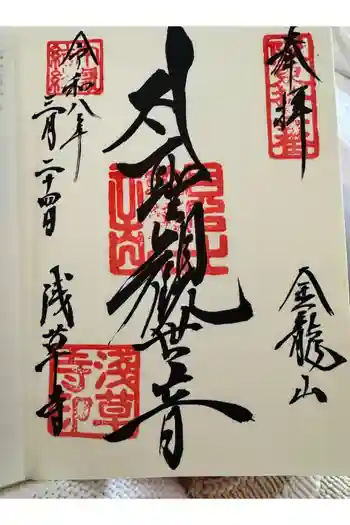 奉拝
金龍山
大聖観世音
令和八年
三月二十四日
浅草寺
浅草
寺印